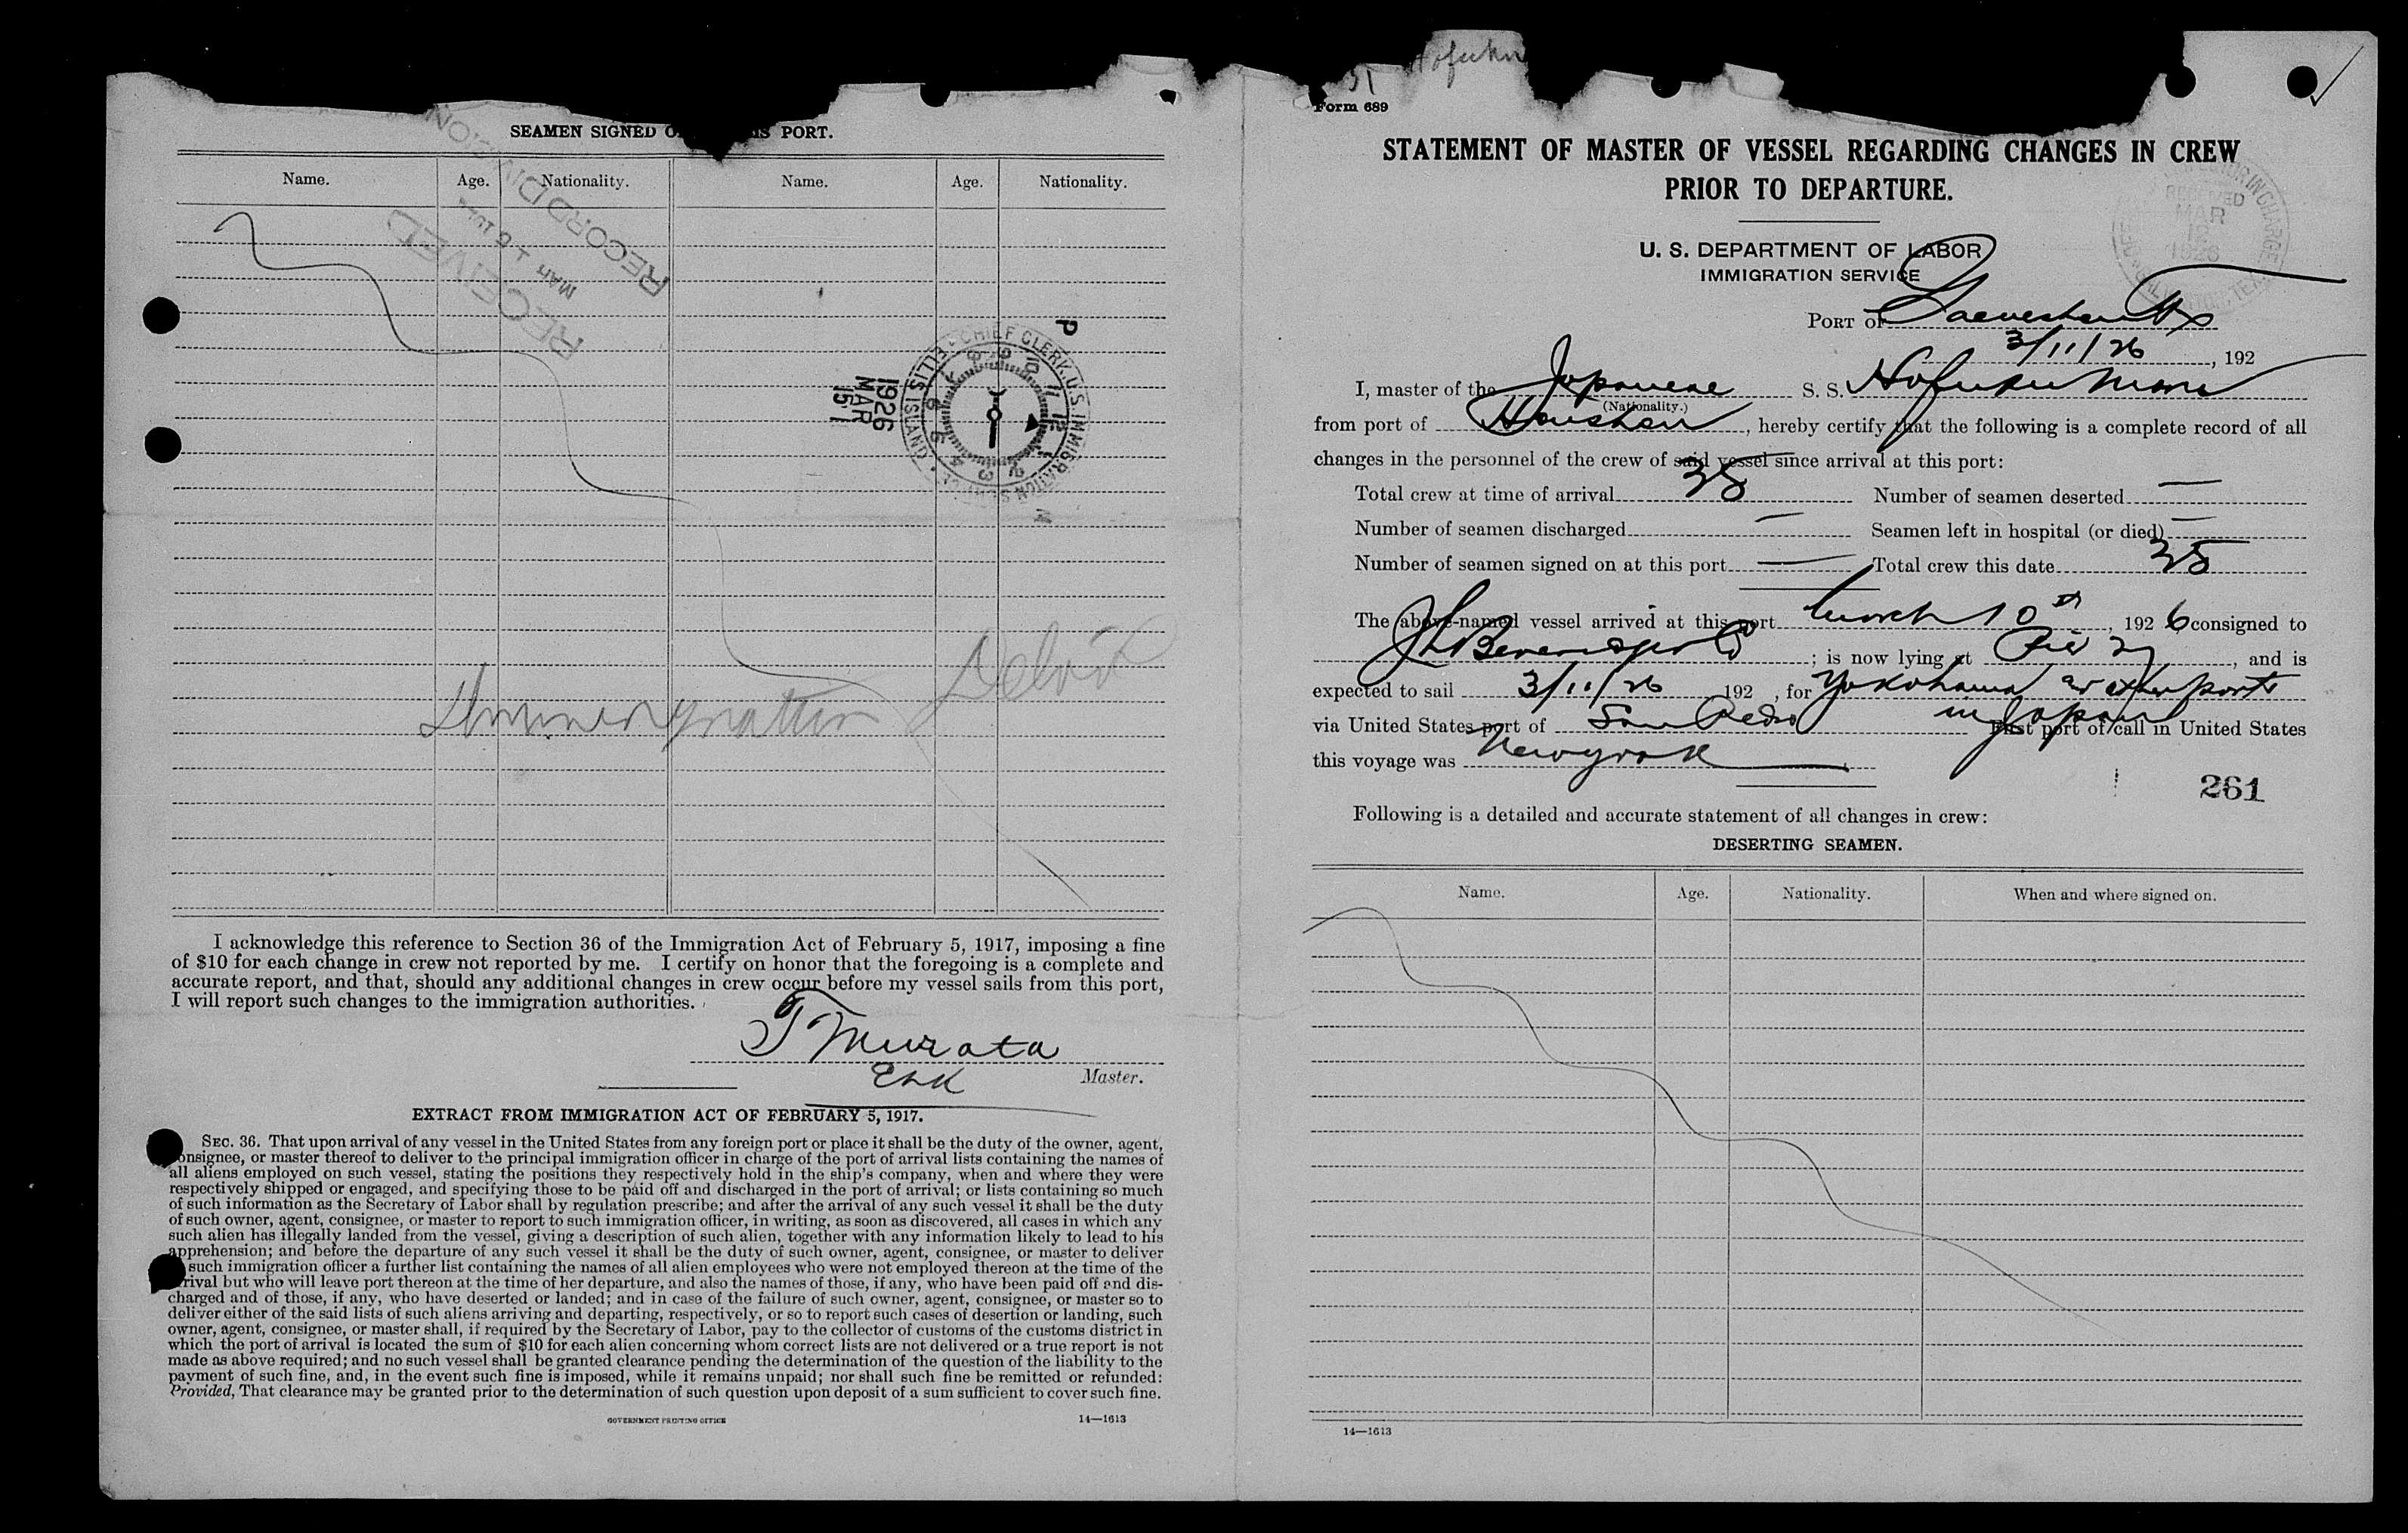 SEAMEN SIGNED O IS PORT.
Name. Age. Nationality. Name. Age. Nationality.
RECEIVED
MAR
RECORD DIVISION
P
1926
MAR
15
CHIEF CLERK, U.S. IMMIGRATION
ELLIS ISLAND
Immigration
I acknowledge this reference to Section 36 of the Immigration Act of February 5, 1917, imposing a fine
of $10 for each change in crew not reported by me. I certify on honor that the foregoing is a complete and
accurate report, and that, should any additional changes in crew occur before my vessel sails from this port,
I will report such changes to the immigration authorities.
T Murata
Master.
EXTRACT FROM IMMIGRATION ACT OF FEBRUARY 5, 1917.
SEC. 36. That upon arrival of any vessel in the United States from any foreign port or place it shall be the duty of the owner, agent,
onsignee, or master thereof to deliver to the principal immigration officer in charge of the port of arrival lists containing the names of
all aliens employed on such vessel, stating the positions they respectively hold in the ship's company, when and where they were
respectively shipped or engaged, and specifying those to be paid off and discharged in the port of arrival; or lists containing so much
of such information as the Secretary of Labor shall by regulation prescribe; and after the arrival of any such vessel it shall be the duty
of such owner, agent, consignee, or master to report to such immigration officer, in writing, as soon as discovered, all cases in which any
such alien has illegally landed from the vessel, giving a description of such alien, together with any information likely to lead to his
apprehension; and before the departure of any such vessel it shall be the duty of such owner, agent, consignee, or master to deliver
such immigration officer a further list containing the names of all alien employees who were not employed thereon at the time of the
rival but who will leave port thereon at the time of her departure, and also the names of those, if any, who have been paid off and dis-
charged and of those, if any, who have deserted or landed; and in case of the failure of such owner, agent, consignee, or master so to
deliver either of the said lists of such aliens arriving and departing, respectively, or so to report such cases of desertion or landing, such
owner, agent, consignee, or master shall, if required by the Secretary of Labor, pay to the collector of customs of the customs district in
which the port of arrival is located the sum of $10 for each alien concerning whom correct lists are not delivered or a true report is not
made as above required; and no such vessel shall be granted clearance pending the determination of the question of the liability to the
payment of such fine, and, in the event such fine is imposed, while it remains unpaid; nor shall such fine be remitted or refunded:
Provided, That clearance may be granted prior to the determination of such question upon deposit of a sum sufficient to cover such fine.
GOVERNMENT PRINTING OFFICE 14—1613
Hofuku
Form 689
STATEMENT OF MASTER OF VESSEL REGARDING CHANGES IN CREW
PRIOR TO DEPARTURE.
RECEIVED
MAR
1926
U. S. DEPARTMENT OF LABOR
IMMIGRATION SERVICE
PORT OF Galveston Tx
3/11/26, 192
I, master of the Japanese S. S. Hofuku Maru
(Nationality.)
from port of Houston, hereby certify that the following is a complete record of all
changes in the personnel of the crew of said vessel since arrival at this port:
Total crew at time of arrival 38 Number of seamen deserted —
Number of seamen discharged — Seamen left in hospital (or died) —
Number of seamen signed on at this port — Total crew this date 38
The above-named vessel arrived at this port March 10th, 1926 consigned to
; is now lying at Pier 27, and is
expected to sail 3/11/26 192 , for Yokohama or other ports
in Japan
via United States port of San Pedro First port of call in United States
this voyage was Newyork
261
Following is a detailed and accurate statement of all changes in crew:
DESERTING SEAMEN.
Name. Age. Nationality. When and where signed on.
14—1613